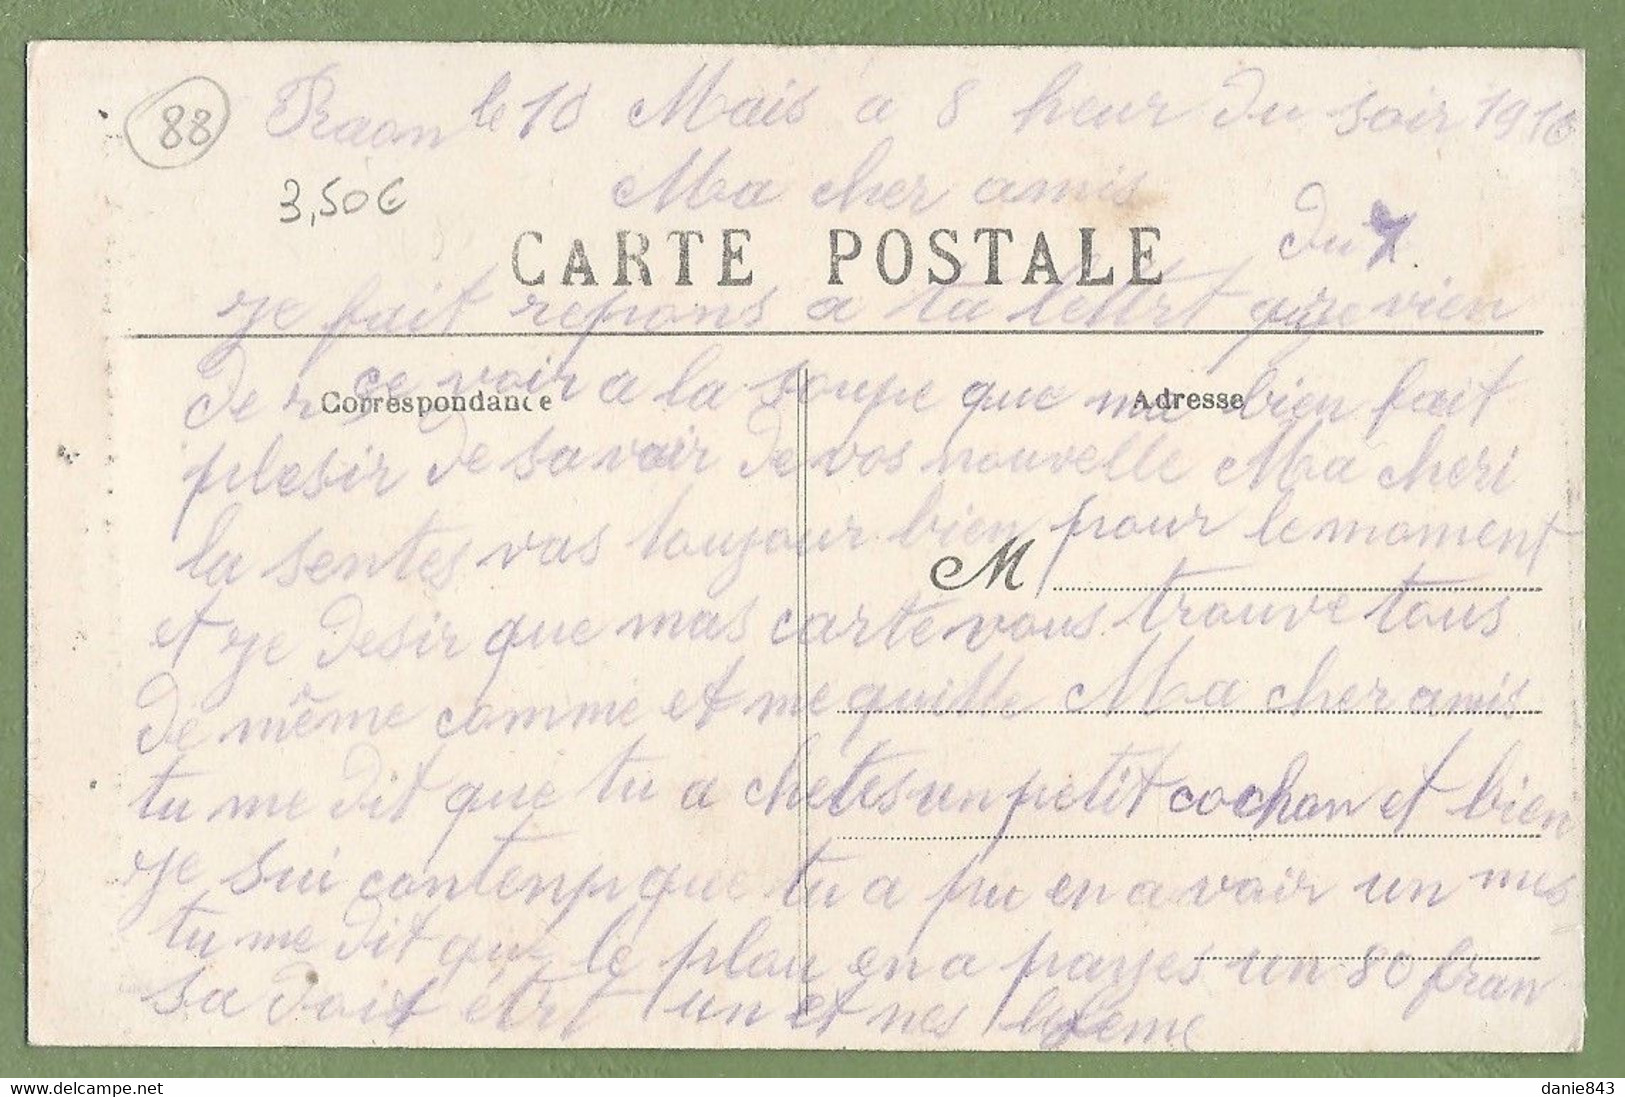 88
Raon le 10 Mais a 8 heur du soir 1916
3,50€
Ma cher amis
du 7
CARTE POSTALE
je fait repons a ta lettrt que je vien
de r ce voir a la soupe que ma bien fait
Correspondance
Adresse
plesir de savoir de vos nouvelle Ma cheri
la sentes vas toujour bien pour le moment
M
et je desir que mas carte vous trouve tous
de même comme et me quitte Ma cher amis
tu me dit que tu a chetes un petit cochon et bien
je sui contenp que tu a pu en avoir un mes
tu me dit que le plau en a payes un 80 fran
sa doit étrt un et nes
danie843